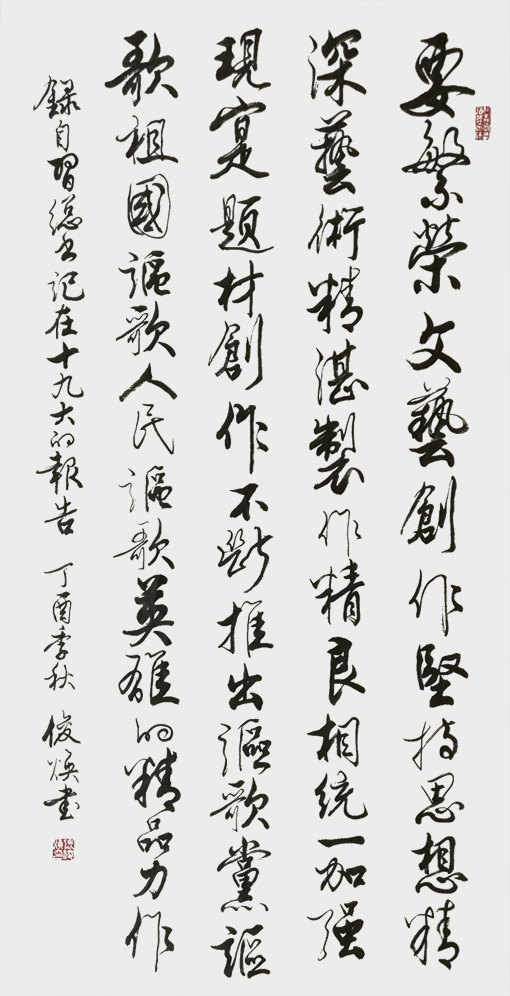 要繁荣文藝創作堅持思想精
深藝術精湛製作精良相統一加强
現寔題材創作不斷推出謳歌黨謳
歌祖國謳歌人民謳歌英雄的精品力作
錄自習總书記在十九大的報告 丁酉季秋 俊焕書